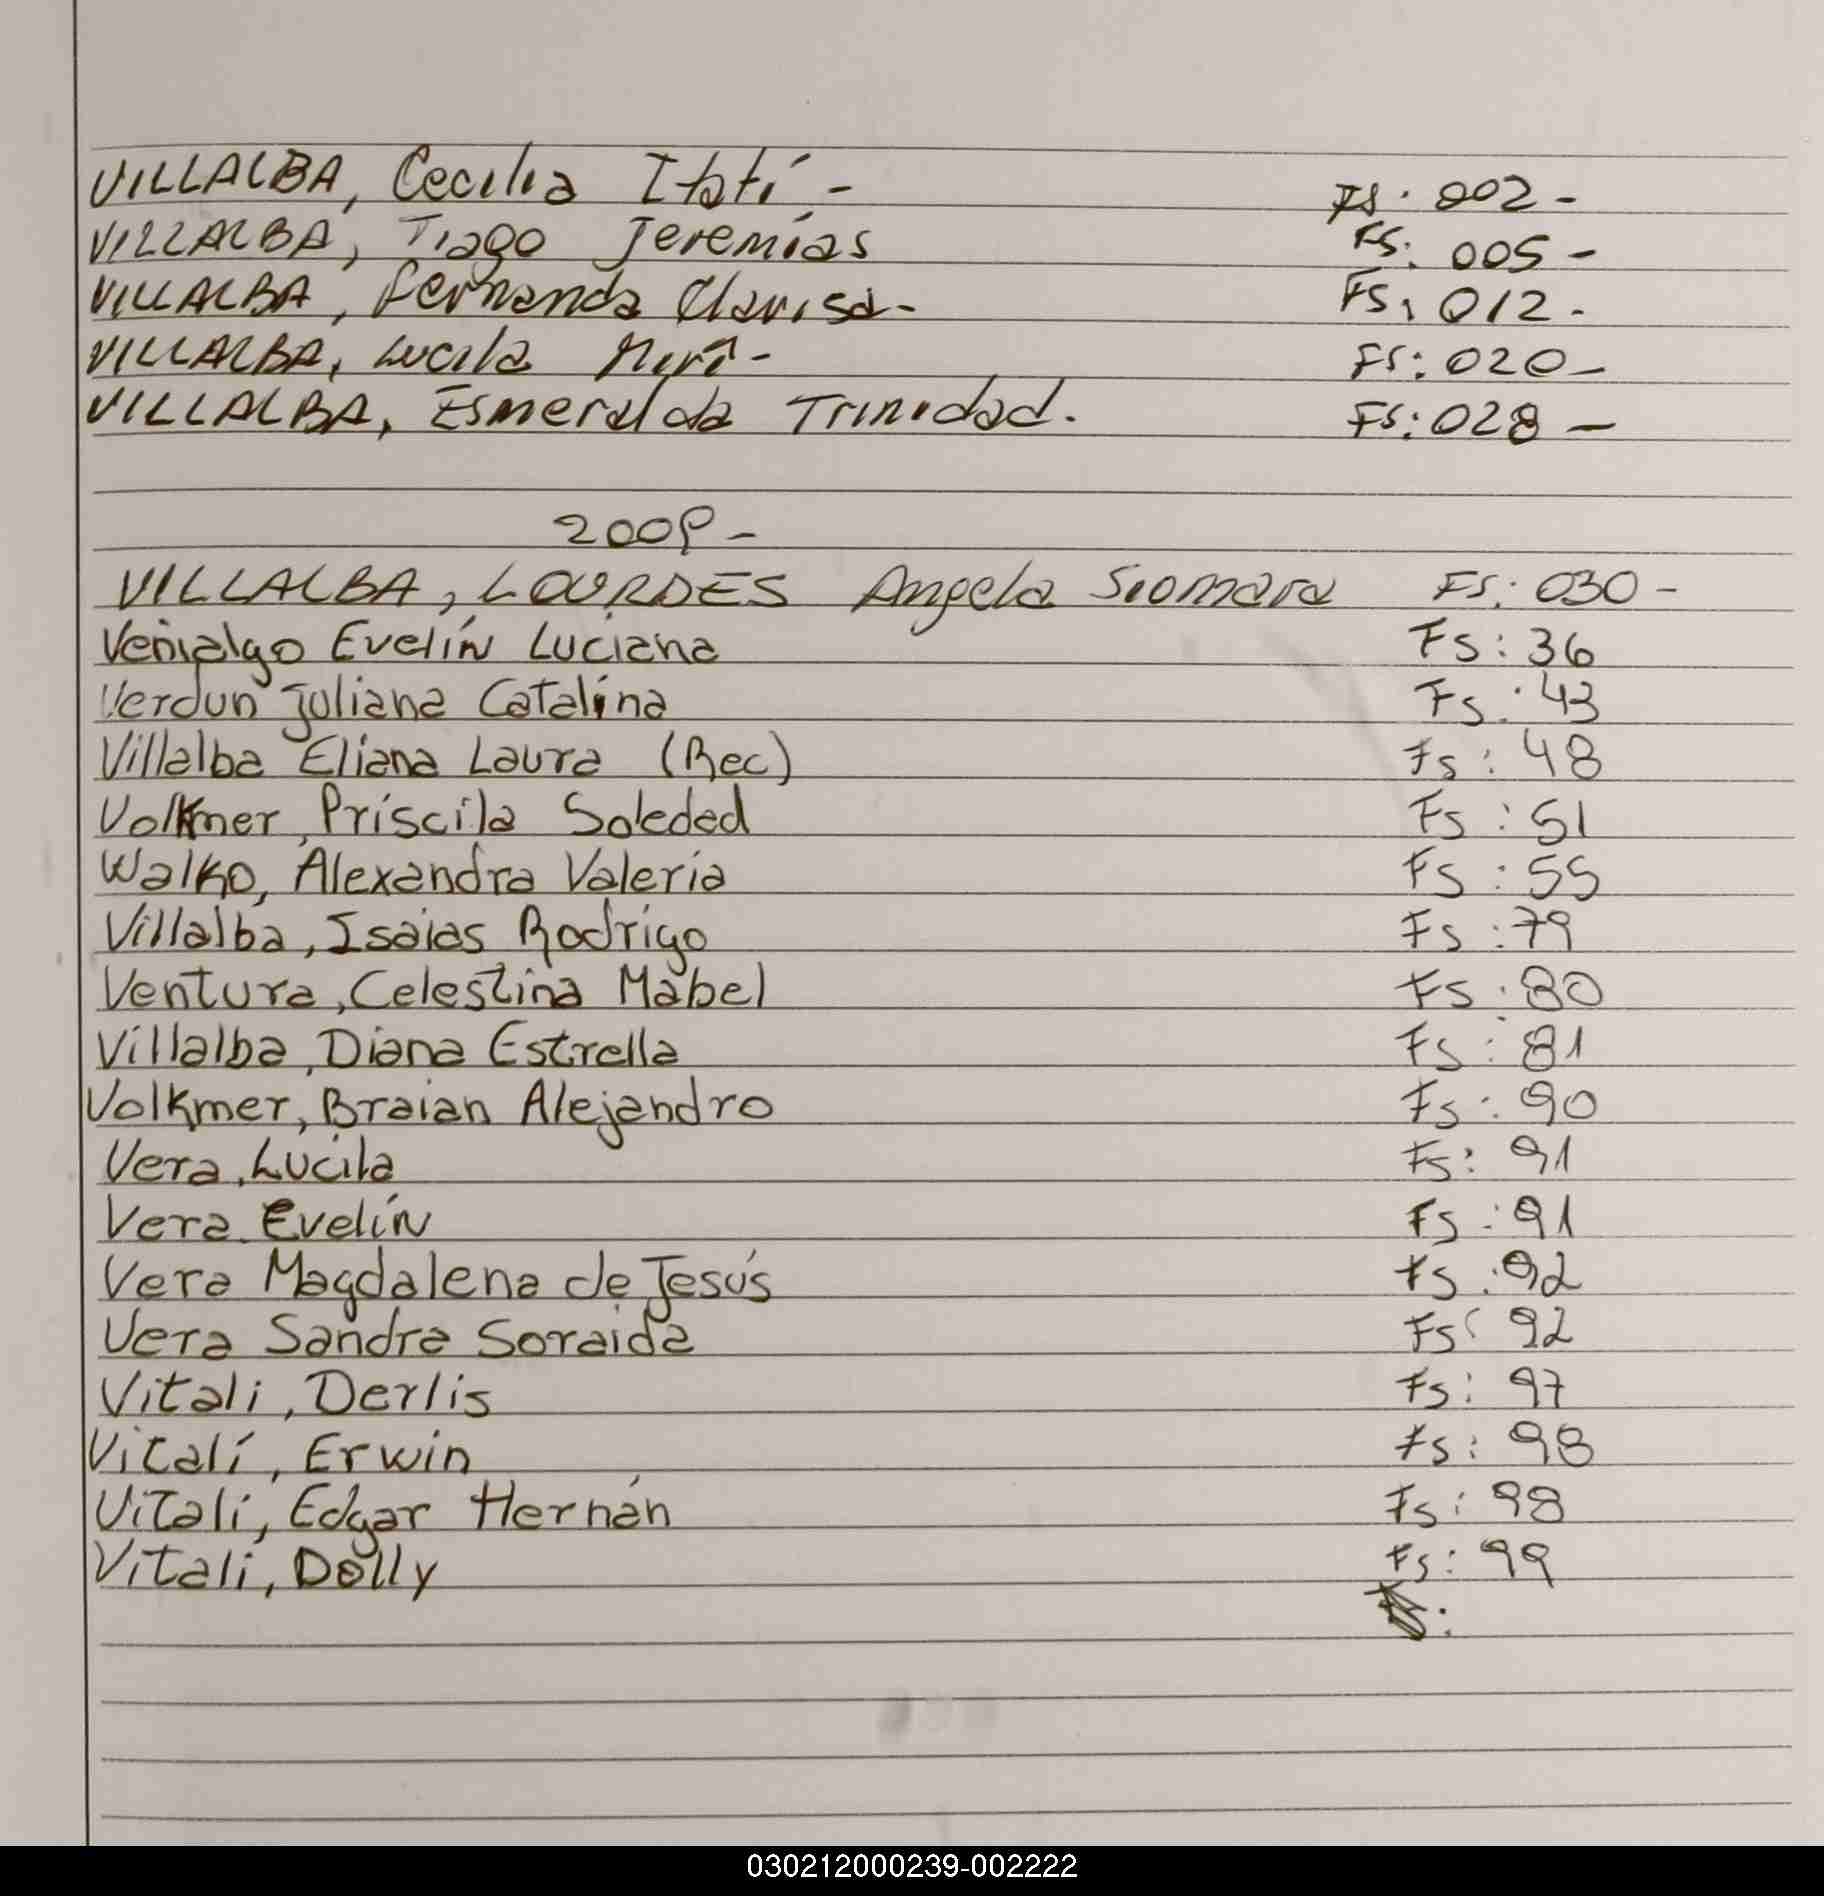 VILLALBA, Cecilia Itatí - Fs: 002 -
VILLALBA, Tiago Jeremías Fs: 005 -
VILLALBA, Fernanda Clarisa - Fs: 012 -
VILLALBA, Lucila - Fs: 020 -
VILLALBA, Esmeralda Trinidad. Fs: 028 -
2009 -
VILLALBA, LOURDES Angela Siomara Fs: 030 -
Veñialgo Evelín Luciana Fs: 36
Verdun Juliana Catalina Fs: 43
Villalba Eliana Laura (Rec) Fs: 48
Volkmer, Priscila Soledad Fs: 51
Walko, Alexandra Valeria Fs: 55
Villalba, Isaias Rodrigo Fs: 79
Ventura, Celestina Mabel Fs: 80
Villalba, Diana Estrella Fs: 81
Volkmer, Braian Alejandro Fs: 90
Vera, Lucila Fs: 91
Vera Evelín Fs: 91
Vera Magdalena de Jesús Fs: 92
Vera Sandra Soraida Fs: 92
Vitali, Derlis Fs: 97
Vitali, Erwin Fs: 98
Vitali, Edgar Hernán Fs: 98
Vitali, Dolly Fs: 99
030212000239-002222